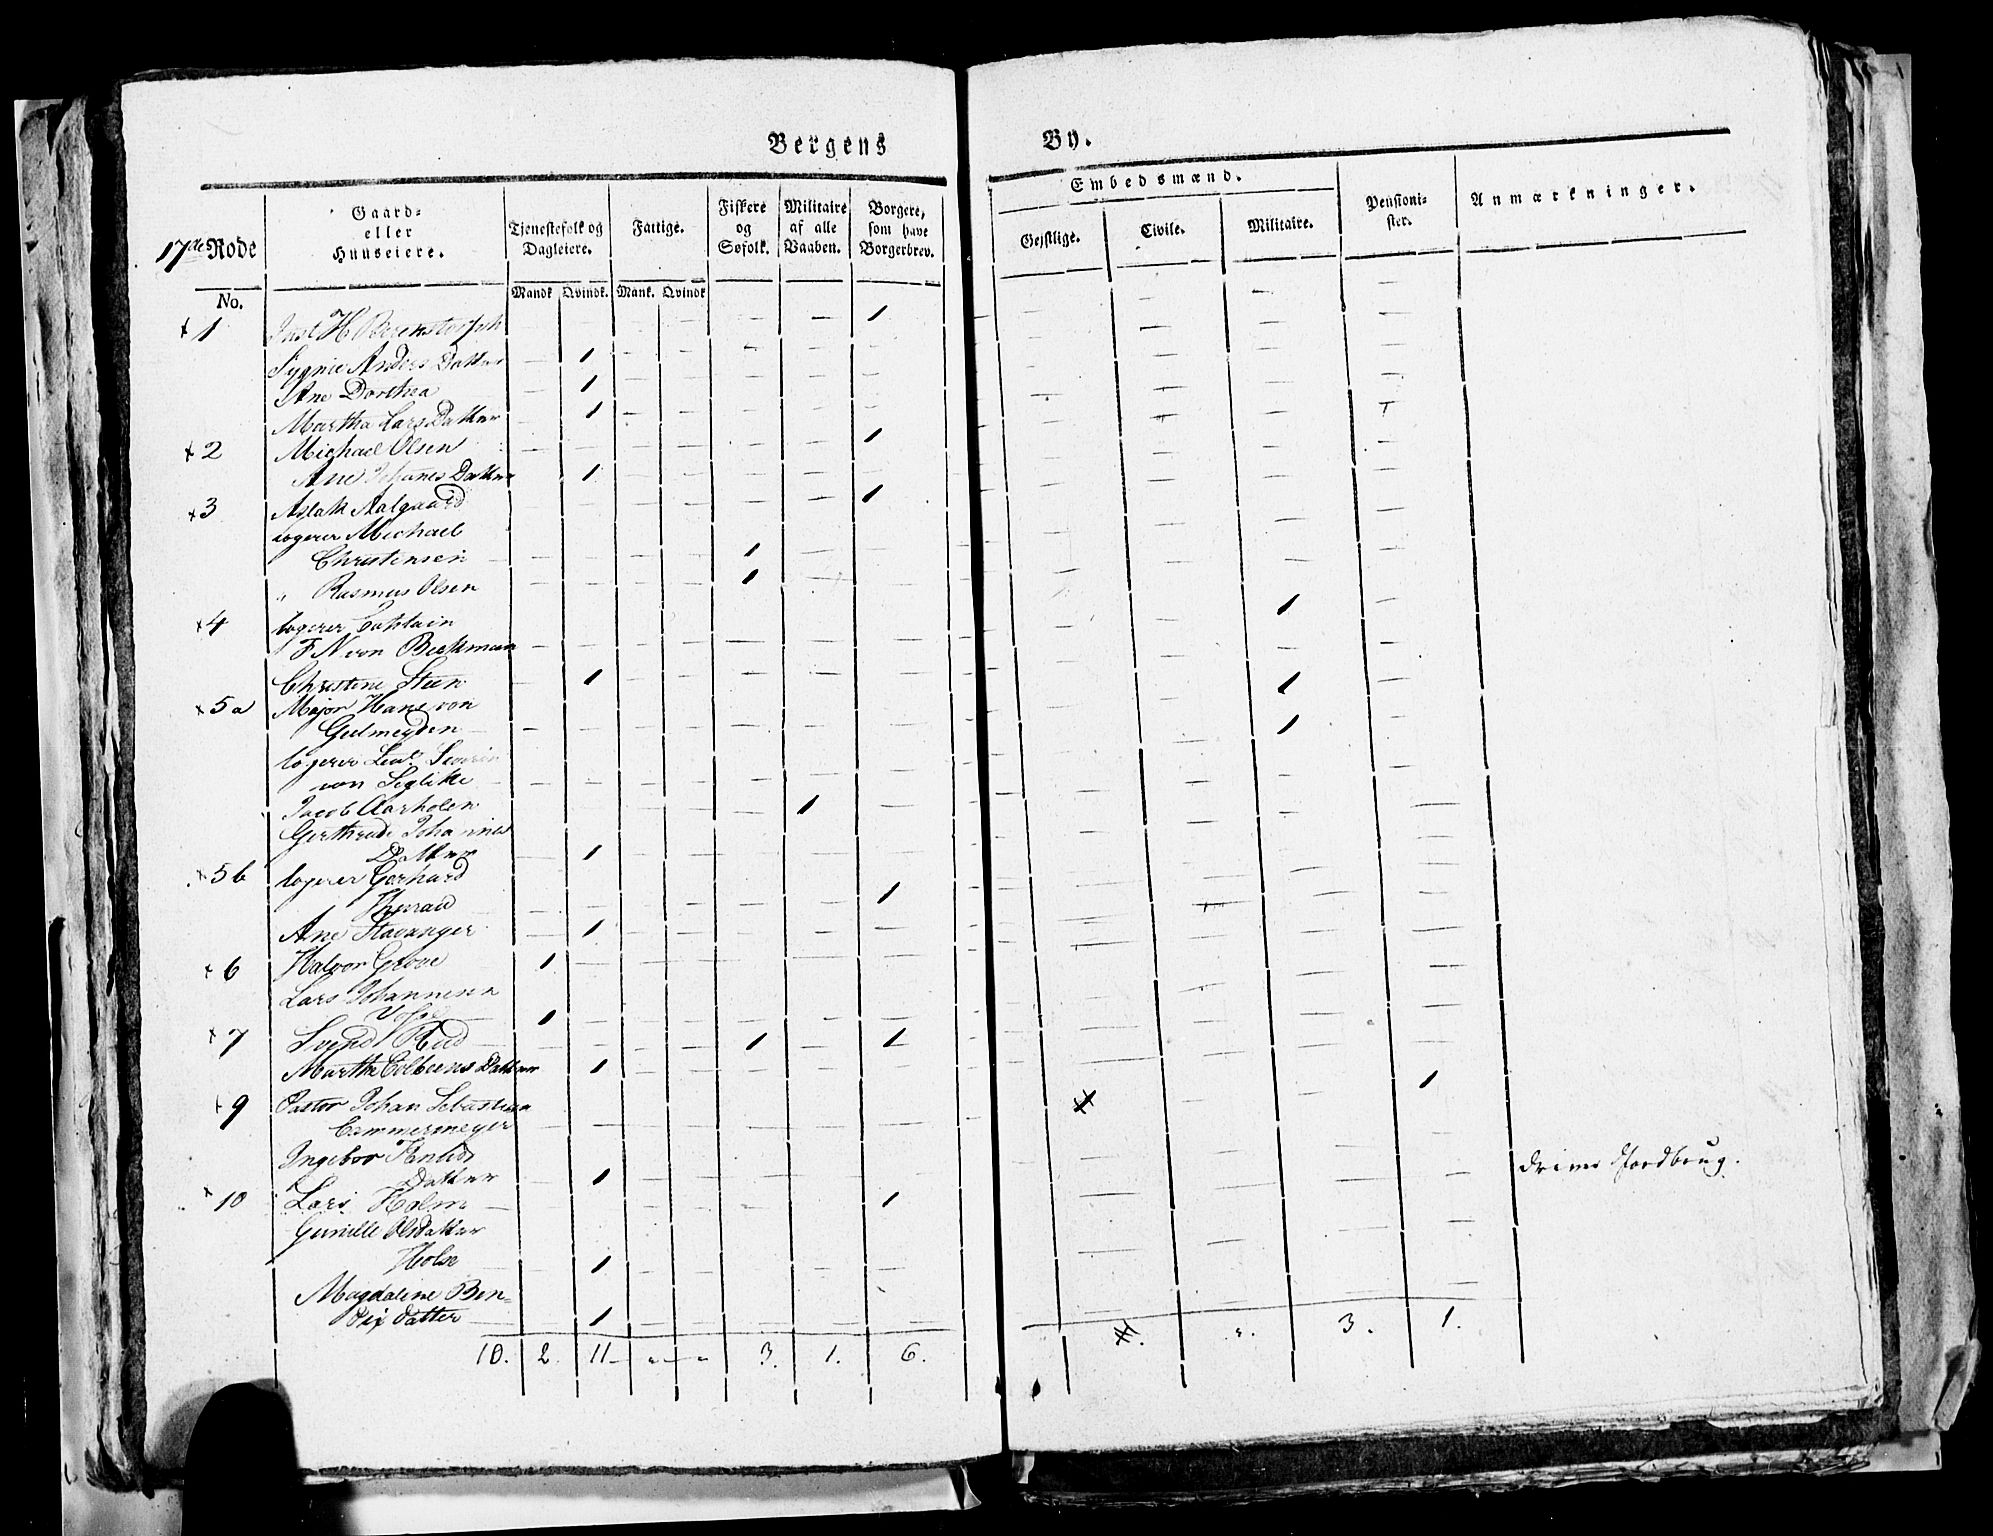 Bergens By.
Embedsmænd.
17de Rode
Gaard- eller Huuseiere.
Tjenestefolk og Dagleiere.
Fattige.
Fiskere og Søfolk.
Militaire af alle Vaaben.
Borgere, som have Borgerbrev.
Gejstlige. Civile. Militaire.
Pensionister.
Anmærkninger.
No.
Mandk Qvindk. Mank. Qvindk
1 Just H Berenstorph — — — — — — 1
Sygnie Anders Datter — 1 — — — — —
Ane Dorthea — 1 — — — — —
Martha Lars Datter — 1 — — — — —
2 Michael Olsen — — — — — — 1
Ane Johanes Datter — 1 — — — — —
3 Aslak Aalgaard — — — — — — 1
logerer Michael
Christensen — — — — 1 — —
" Rasmus Olsen — — — — 1 — —
4 logerer Captain 1
F N von Beckman — — — — — — —
Christine Steen — 1 — — — — —
5 a Major Hans von 1
Gulmeyden — — — — — — — 1
logerer Leut. Severin
von
Jacob Aarholen — — — — — 1 —
Gerthrude Johannes
Datter — 1 — — — — —
5 b logerer Gerhard
— — — — — — 1
Ane Stavanger — 1 — — — — —
6 Halvor Grove 1 — — — — — —
Lars Johannesen
1 — — — — — —
7 Svend Rud — — — — 1 — 1
Marthe Colbens Datter — 1 — — — — — 1
9 Pastor Johan Sebastian
Cammermeyer — — — — — — —
Ingebor Knuds
Datter — 1 — — — — — driver Jordbrug.
10 Lars Holm — — — — — — 1
Gunille Olsdatter
Holse — 1 — — — — —
Magdalene Ben=
dix datter — 1 — — — — —
10. 2. 11 - " - " 3. 1. 6. ". 3. 1.